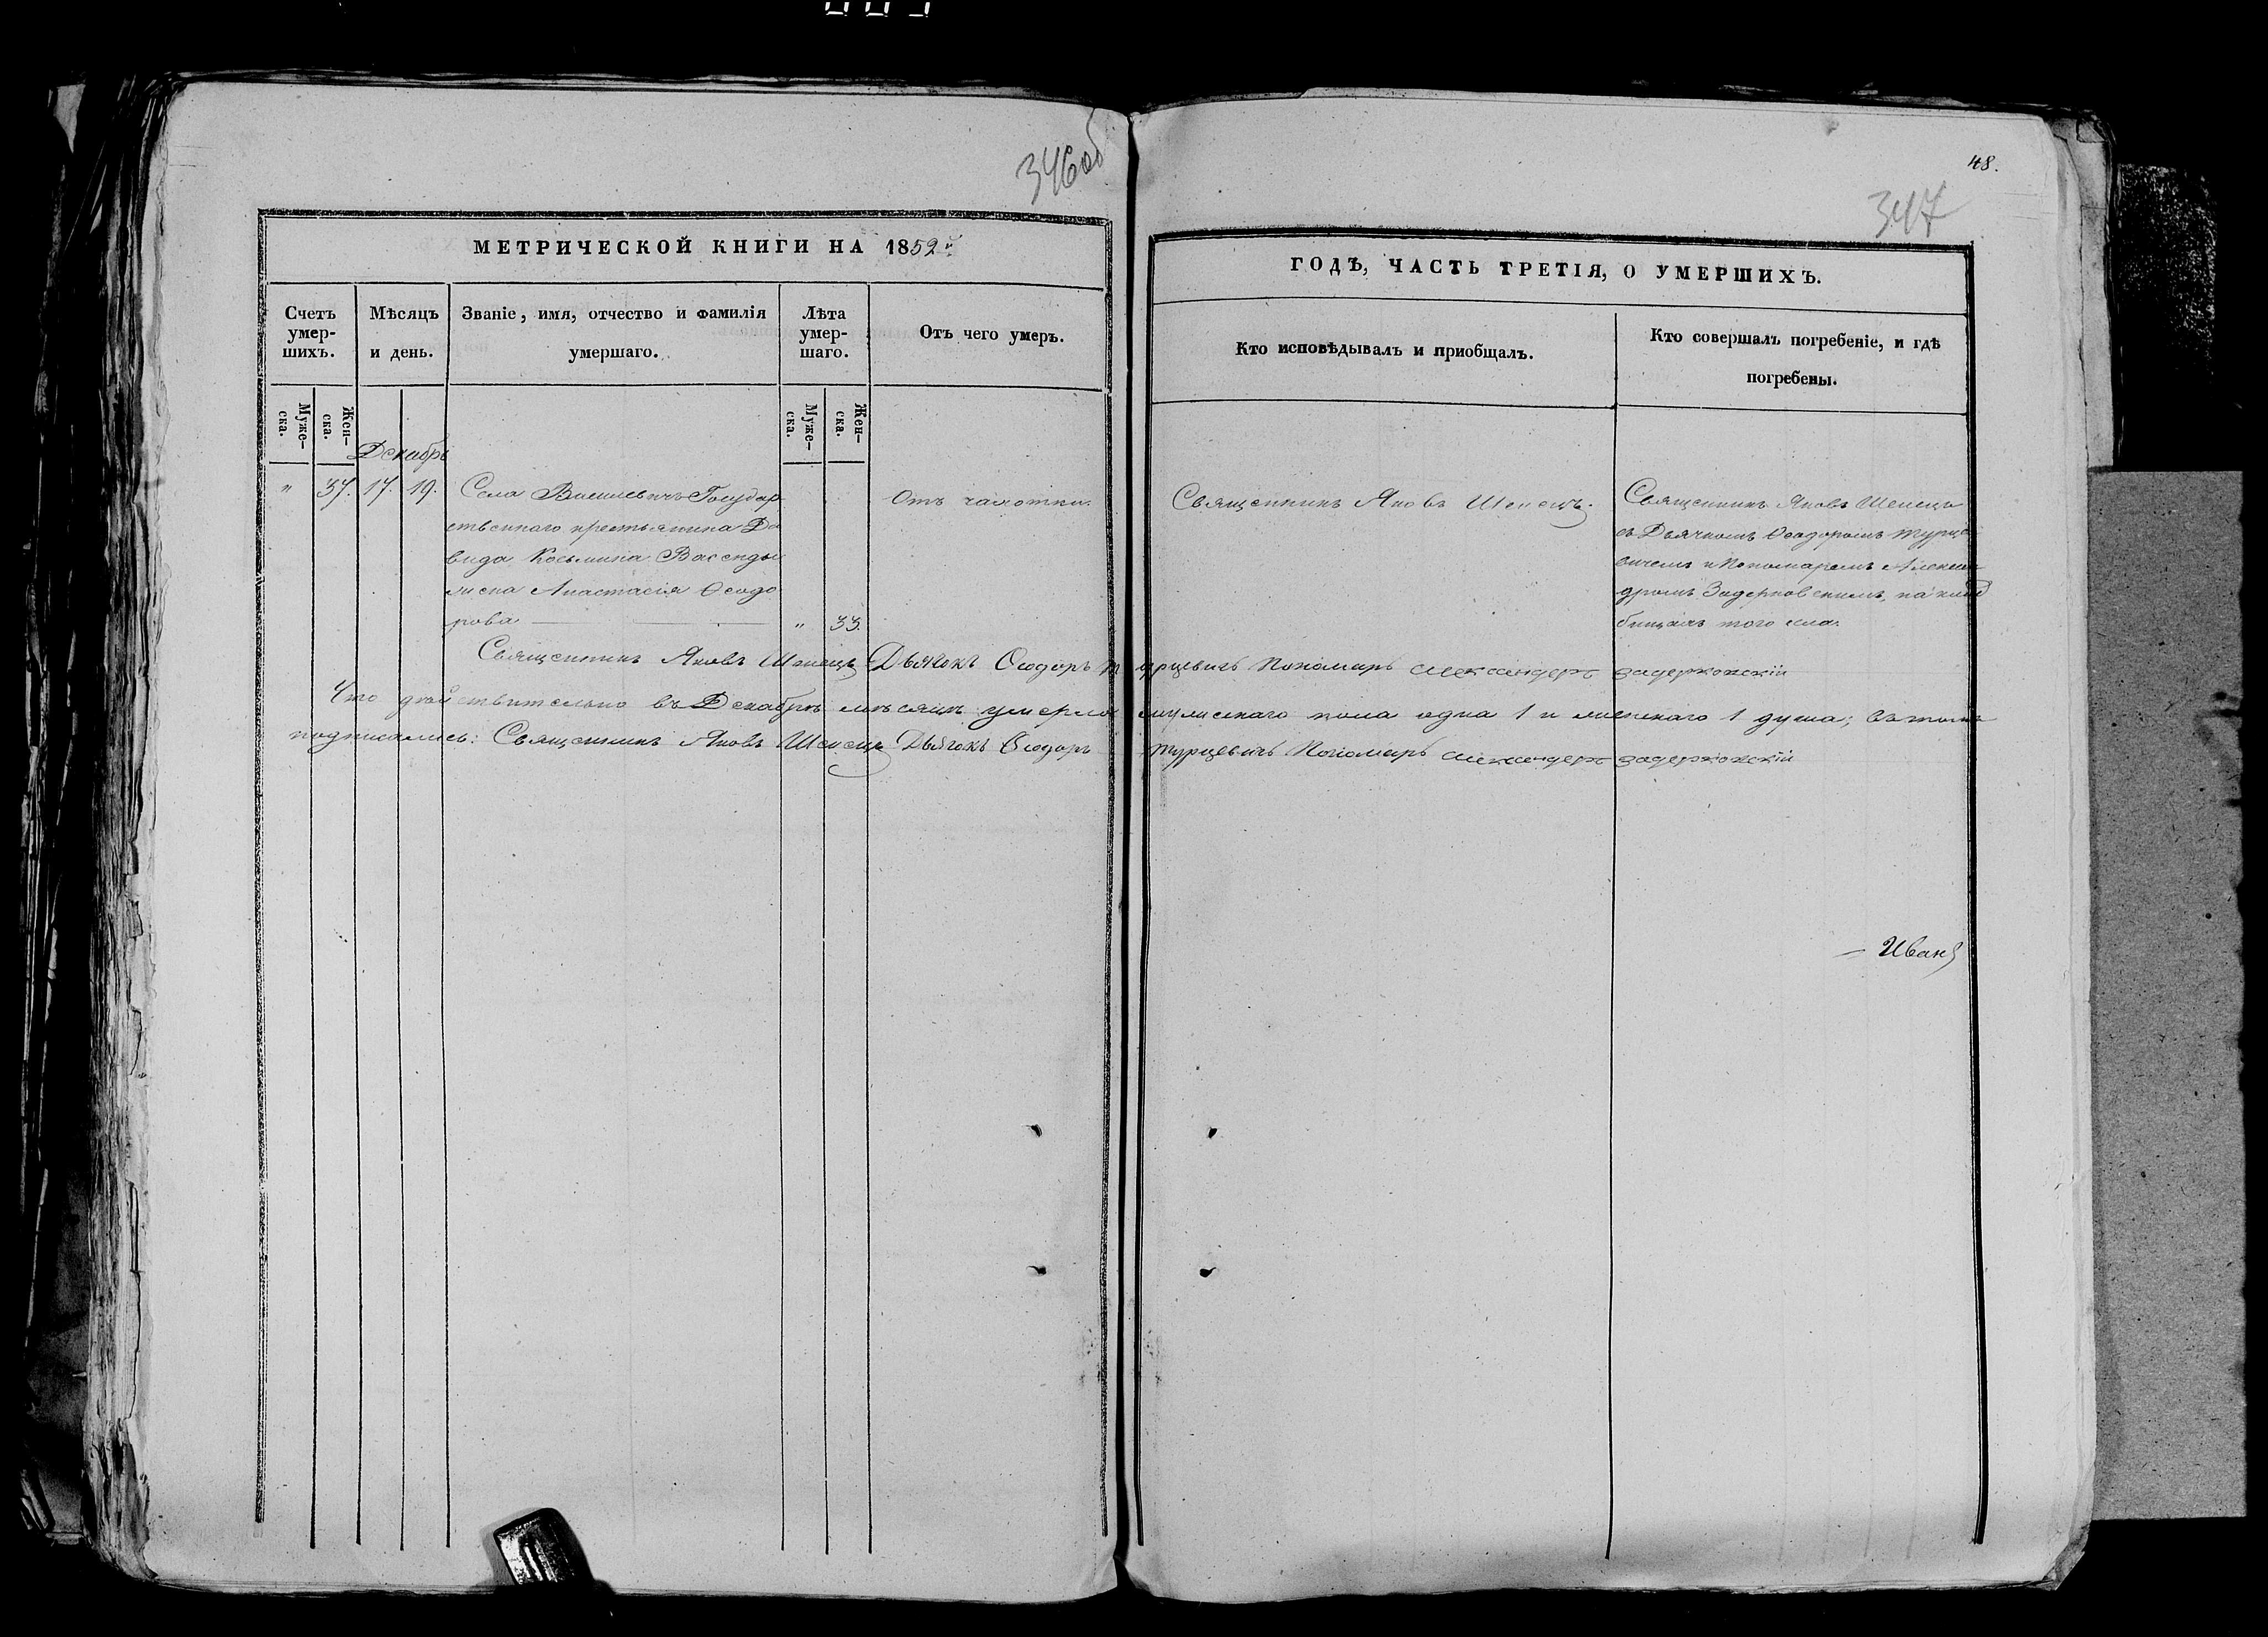 346об
МЕТРИЧЕСКОЙ КНИГИ НА 1852й
Счетъ умер-шихъ.
Мѣсяцъ и день.
Званіе, имя, отчество и фамилія умершаго.
Лѣта умер-шаго.
Отъ чего умеръ.
Муже-ска.
Жен-ска.
Муже-ска.
Жен-ска.
Декабрь
" 37. 17. 19. Села Василевичъ Государ
ственнаго крестьянина Да
вида Косьмина
жена Анастасія Ѳеодо
рова " 33.
Отъ чахотки.
48.
347
ГОДЪ, ЧАСТЬ ТРЕТІЯ, О УМЕРШИХЪ.
Кто исповѣдывалъ и приобщалъ.
Кто совершалъ погребеніе, и гдѣ
погребены.
Священникъ Яковъ Шепецъ.
Священникъ Яковъ Шепецъ
съ Дьячкомъ Ѳеодоромъ Турце
вичемъ и Пономаремъ Алексан
дромъ Задерковскимъ, на клад
бищахъ того села.
Священникъ Яковъ Шепецъ Дьячокъ Ѳеодоръ Турцевичъ Пономарь Александеръ Задерковскій
Что действительно въ Декабрѣ мѣсяцѣ умерло мужескаго пола одна 1 и женскаго 1 душа; въ томъ
подписались: Священникъ Яковъ Шепецъ Дьячокъ Ѳеодоръ Турцевичъ Пономарь Александеръ Задерковскій
— Иванъ